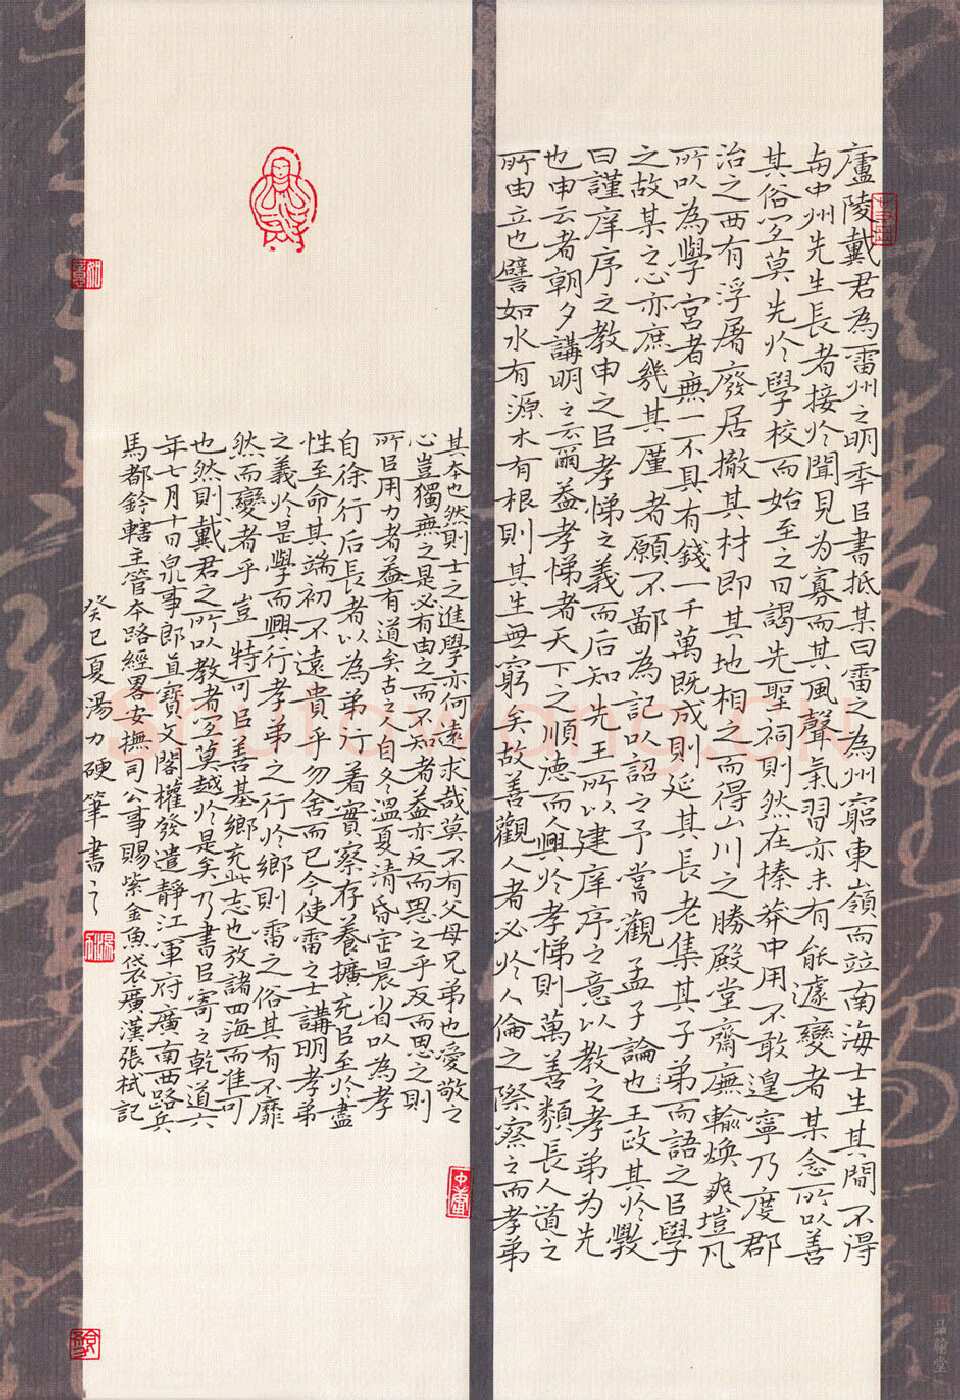 廬陵戴君為雷州之明年㠯書抵某曰雷之為州窮東嶺而竝南海士生其間不得
与中州先生長者接於聞見为寡而其風聲氣習亦未有能遽變者某念所以善
其俗宜莫先於學校而始至之日謁先聖祠則然在榛莽中用不敢遑寧乃度郡
治之西有浮屠廢居撤其材即其地相之而得山川之勝殿堂齋廡輪煥爽塏凡
所以為學宮者無一不具有錢一千萬既成則延其長老集其子弟而語之㠯學
之故某之心亦庶幾其厪者願不鄙為記以詔之予嘗觀孟子論也王政其於斅
曰謹庠序之教申之㠯孝悌之義而后知先王所以建庠序之意以教之孝弟为先
也申云者朝夕講明之云爾葢孝悌者天下之順德而人興於孝悌則萬善類長人道之
所由立也譬如水有源木有根則其生無窮矣故善觀人者必於人倫之際察之而孝弟
其本也然則士之進學亦何遠求哉莫不有父母兄弟也愛敬之
心豈獨無之是必有由之而不知者葢亦反而思之乎反而思之則
所㠯用力者葢有道矣古之人自冬溫夏清昏定晨省以為孝
自徐行后長者以為弟行着實察存養擴充㠯至於盡
性至命其端初不遠貴乎勿舍而已今使雷之士講明孝弟
之義於是學而興行孝弟之行於鄉則雷之俗其有不靡
然而變者乎豈特可㠯善基鄉充此志也放諸四海而准可
也然則戴君之所以教者宜莫越於是矣乃書㠯寄之乾道六
年七月十日泉事郎直寶文閣權發遣靜江軍府廣南西路兵
馬都鈐轄主管本路經畧安撫司公事賜紫金魚袋廣漢張栻記
癸巳夏湯力硬筆書之
品翰堂